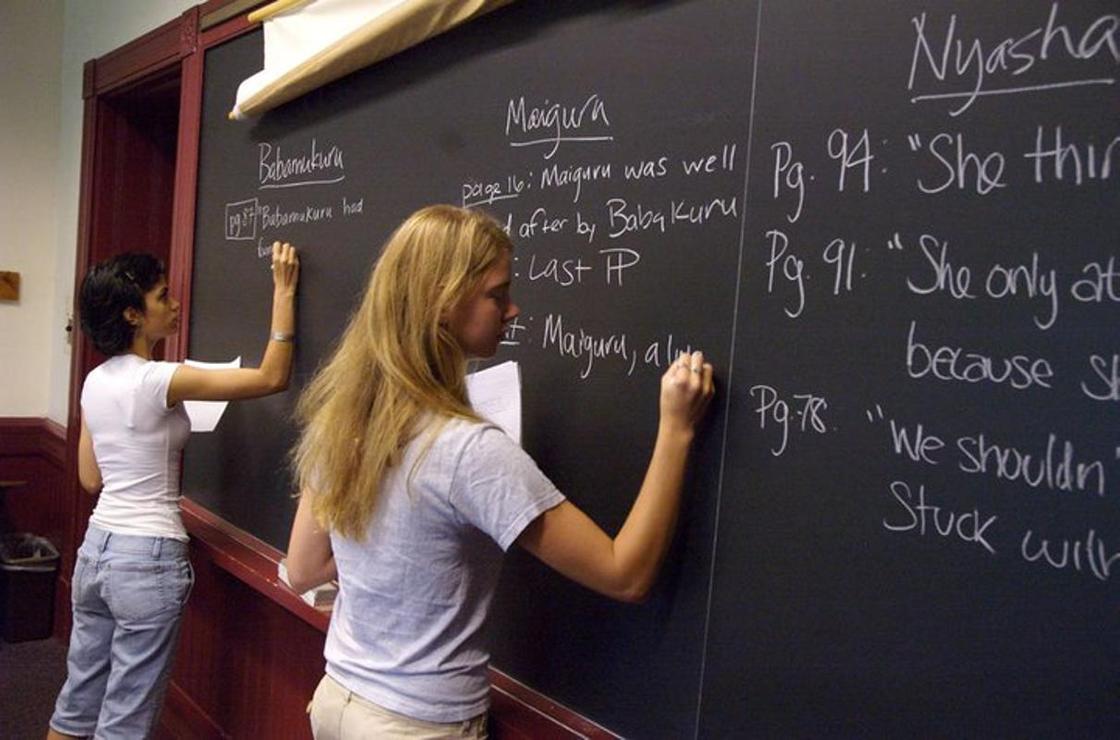 Babamukuru
pg.87 "Babamukuru had
Maiguru
page 16: Maiguru was well
after by Babakuru
: Last
: Maiguru, a
Nyasha
Pg. 94: "She thin
Pg. 91: "She only at
because s
Pg. 78 "We shouldn'
Stuck with